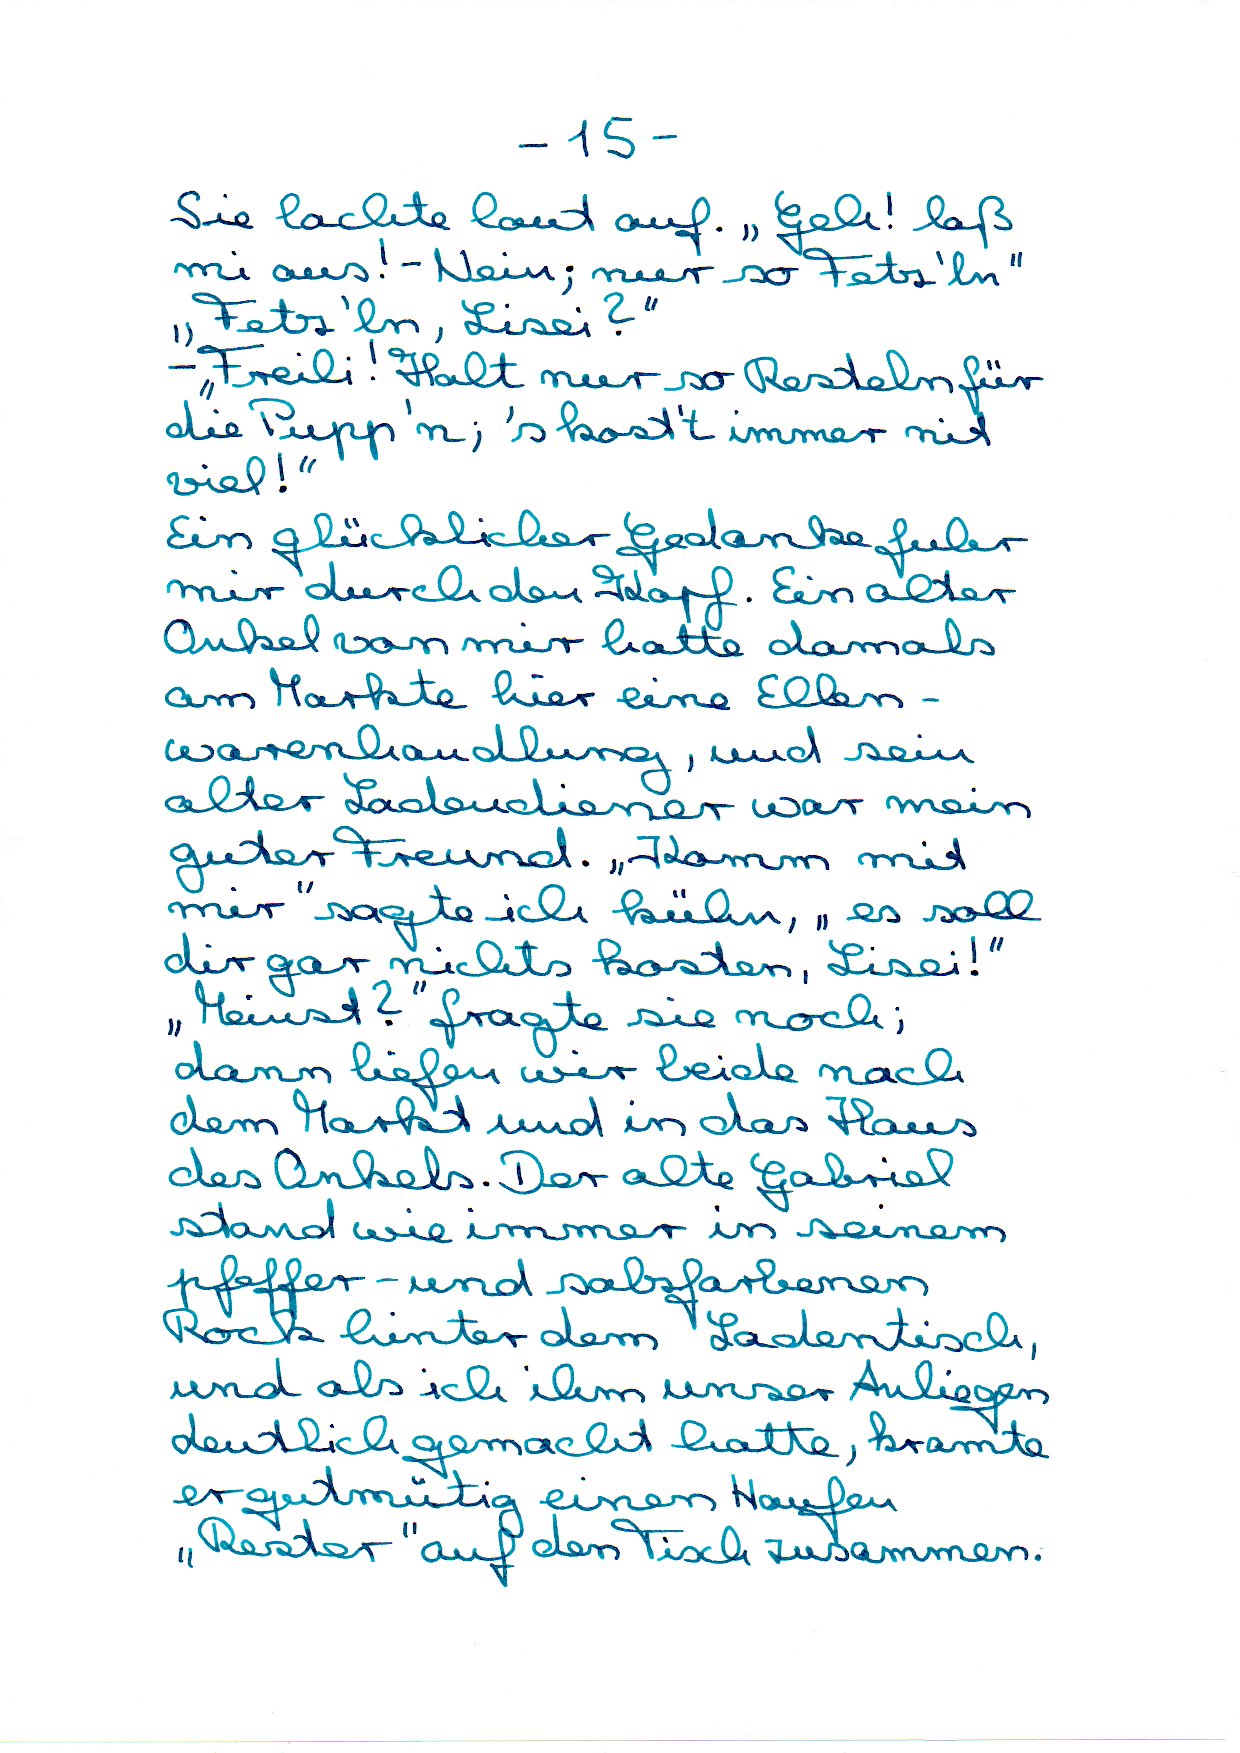 - 15 -
Sie lachte laut auf. „Geh! laß
mi aus! - Nein; nur so Fetz'ln"
„Fetz'ln, Lisei?"
- „Freili! Halt nur so Resteln für
die Pupp'n; 's kost't immer nit
viel!"
Ein glücklicher Gedanke fuhr
mir durch den Kopf. Ein alter
Onkel von mir hatte damals
am Markte hier eine Ellen-
warenhandlung, und sein
alter Ladendiener war mein
guter Freund. „Komm mit
mir" sagte ich kühn, „es soll
dir gar nichts kosten, Lisei!"
„Meinst?" fragte sie noch;
dann liefen wir beide nach
dem Markt und in das Haus
des Onkels. Der alte Gabriel
stand wie immer in seinem
pfeffer- und salzfarbenen
Rock hinter dem Ladentisch,
und als ich ihm unser Anliegen
deutlich gemacht hatte, kramte
er gutmütig einen Haufen
„Rester" auf den Tisch zusammen.